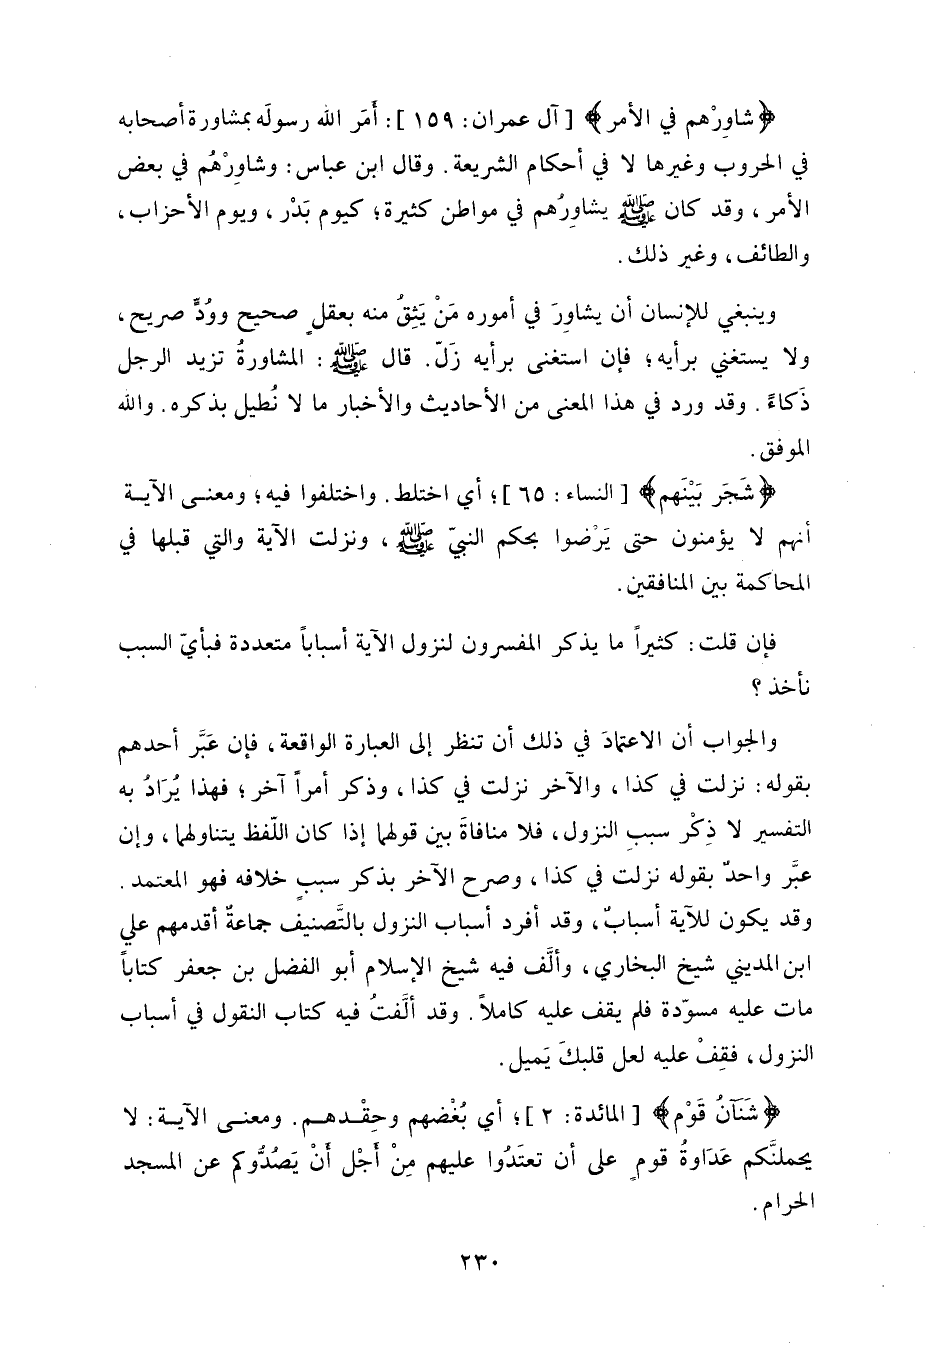 ﴿شاورْهم في الأمر﴾ [آل عمران: ١٥٩]: أَمَر الله رسولَه بمشاورة أصحابه
في الحروب وغيرها لا في أحكام الشريعة. وقال ابن عباس: وشاوِرْهُم في بعض
الأمر، وقد كان ﷺ يشاورُهم في مواطن كثيرة؛ كيوم بَدْر، ويوم الأحزاب،
والطائف، وغير ذلك.
وينبغي للإنسان أن يشاورَ في أموره مَنْ يَثِقُ منه بعقلٍ صحيح وودٍّ صريح،
ولا يستغني برأيه؛ فإن استغنى برأيه زَلّ. قال ﷺ: المشاورةُ تزيد الرجل
ذَكاءً. وقد ورد في هذا المعنى من الأحاديث والأخبار ما لا نُطيل بذكره. والله
الموفق.
﴿شَجَر بَيْنَهم﴾ [النساء: ٦٥]؛ أي اختلط. واختلفوا فيه؛ ومعنى الآية
أنهم لا يؤمنون حتى يَرْضوا بحكم النبيّ ﷺ، ونزلت الآية والتي قبلها في
المحاكمة بين المنافقين.
فإن قلت: كثيراً ما يذكر المفسرون لنزول الآية أسباباً متعددة فبأيّ السبب
نأخذ؟
والجواب أن الاعتمادَ في ذلك أن تنظر إلى العبارة الواقعة، فإن عَبَّر أحدهم
بقوله: نزلت في كذا، والآخر نزلت في كذا، وذكر أمراً آخر؛ فهذا يُرَادُ به
التفسير لا ذِكْر سببِ النزول، فلا منافاةَ بين قولهما إذا كان اللّفظ يتناولهما، وإن
عبَّر واحدٌ بقوله نزلت في كذا، وصرح الآخر بذكر سببٍ خلافه فهو المعتمد.
وقد يكون للآية أسبابٌ، وقد أفرد أسباب النزول بالتَّصنيف جماعةٌ أقدمهم علي
ابن المديني شيخ البخاري، وألَّف فيه شيخ الإسلام أبو الفضل بن جعفر كتاباً
مات عليه مسوّدة فلم يقف عليه كاملاً. وقد ألَّفتُ فيه كتاب النقول في أسباب
النزول، فقِفْ عليه لعل قلبكَ يَميل.
﴿شَنَآنُ قَوْم﴾ [المائدة: ٢]؛ أي بُغْضهم وحِقْدهم. ومعنى الآية: لا
يحملنَّكم عَدَاوةُ قومٍ على أن تعتَدُوا عليهم مِنْ أَجْل أَنْ يَصُدُّوكم عن المسجد
الحرام.
٢٣٠